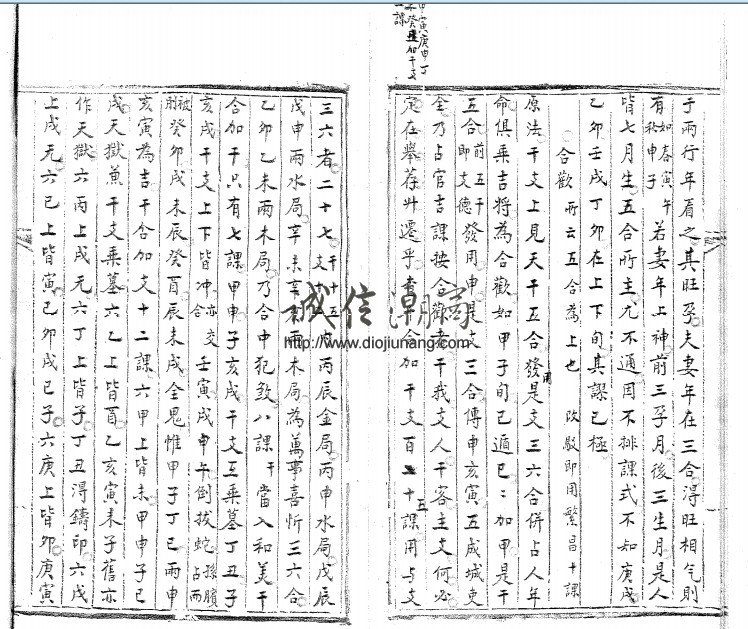 甲寅庚申丁
加干支
一課
于兩行年看之其旺孕夫妻年在三合得旺相气則
有如春寅午秋申子若妻年上神前三孕月後三生月是人
皆七月生五合所主尤不通用不排課式不知庚戌
乙卯壬戌丁卯在上下旬其謬已極
合歡 所云五合為上也 改駁即用繁昌十課
原法干支上見天干五合發用是支三六合併占人年
命俱乘吉將為合歡如甲子旬己遁巳巳加甲是干
五合前五干即支德發用申是支三合傳申亥寅五成城吏
全乃占官吉課按合歡者干我支人干客主支何必
定在舉荐升遷乎合加干支百二十五課用与支
三六者二十七干十五支丙辰金局丙申水局戊辰
戊申兩水局辛未辛兩木局為萬事喜忻三六合
乙卯乙未兩木局乃合中犯煞八課干當入和美干
合加干只有七課甲申甲子亥戌干支互乘墓丁丑子
亥戌干支上下皆冲亦交合壬寅戌申午倒拔蛇孫臏占而
被刖癸卯戌未辰癸酉辰未戌全鬼惟甲子丁巳兩申
亥寅為吉干合加支十二課六甲上皆未甲申子巳
戌天獄兼干支乘墓六乙上皆酉乙亥寅未子舊亦
作天獄六丙上戌无六丁上皆子丁丑得鑄印六戊
上戌无六己上皆寅己卯戌巳子六庚上皆卯庚寅
誠信潮
http://www.diojiunang.com